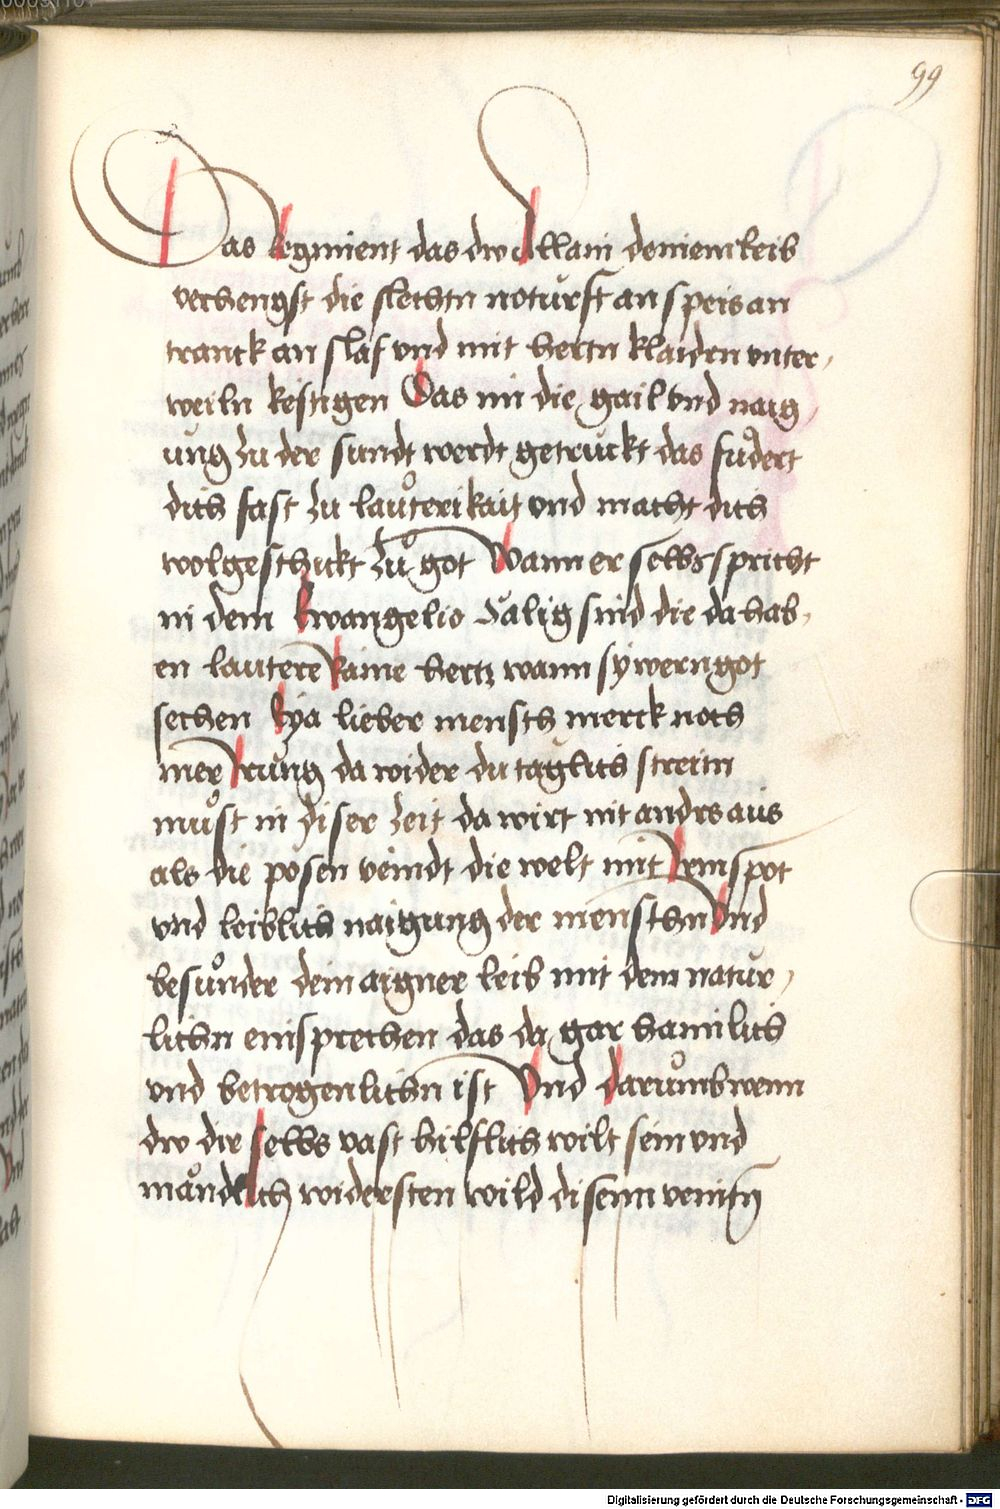 99
Das Regmient das dw Allain deniem leib
verhengst die slechtn noturft an speis an
tranck an slaf vnd mit hertn klaidrn vnter,
weiln kestigen Das im die gail vnd naig,
ung zu der sundt werdt getruckt das fudert
dich fast zu lauterikait vnd macht dich
wolgeschickt zu got Wann er selbs spricht
in dem Ewangelio Sälig sind die da hab,
en lautere Raine hertz wann sy wern got
sechen Eya lieber mensch merck noch
mer Irung da wider du täglich streitn
muost in diser zeit da wirt nit andrs aus
als die pösen veindt die welt mit Irm spot
vnd leiblich naigung der menschn Vnd
besunder dein aigner leib mit dem natur,
lichn einsprechen das da gar hamilich
vnd betrogenlichn ist Vnd darumb wenn
dw dir selbs vast hilflich wilt sein vnd
mandlich widersten wild disenn venitn
Digitalisierung gefördert durch die Deutsche Forschungsgemeinschaft - DFG